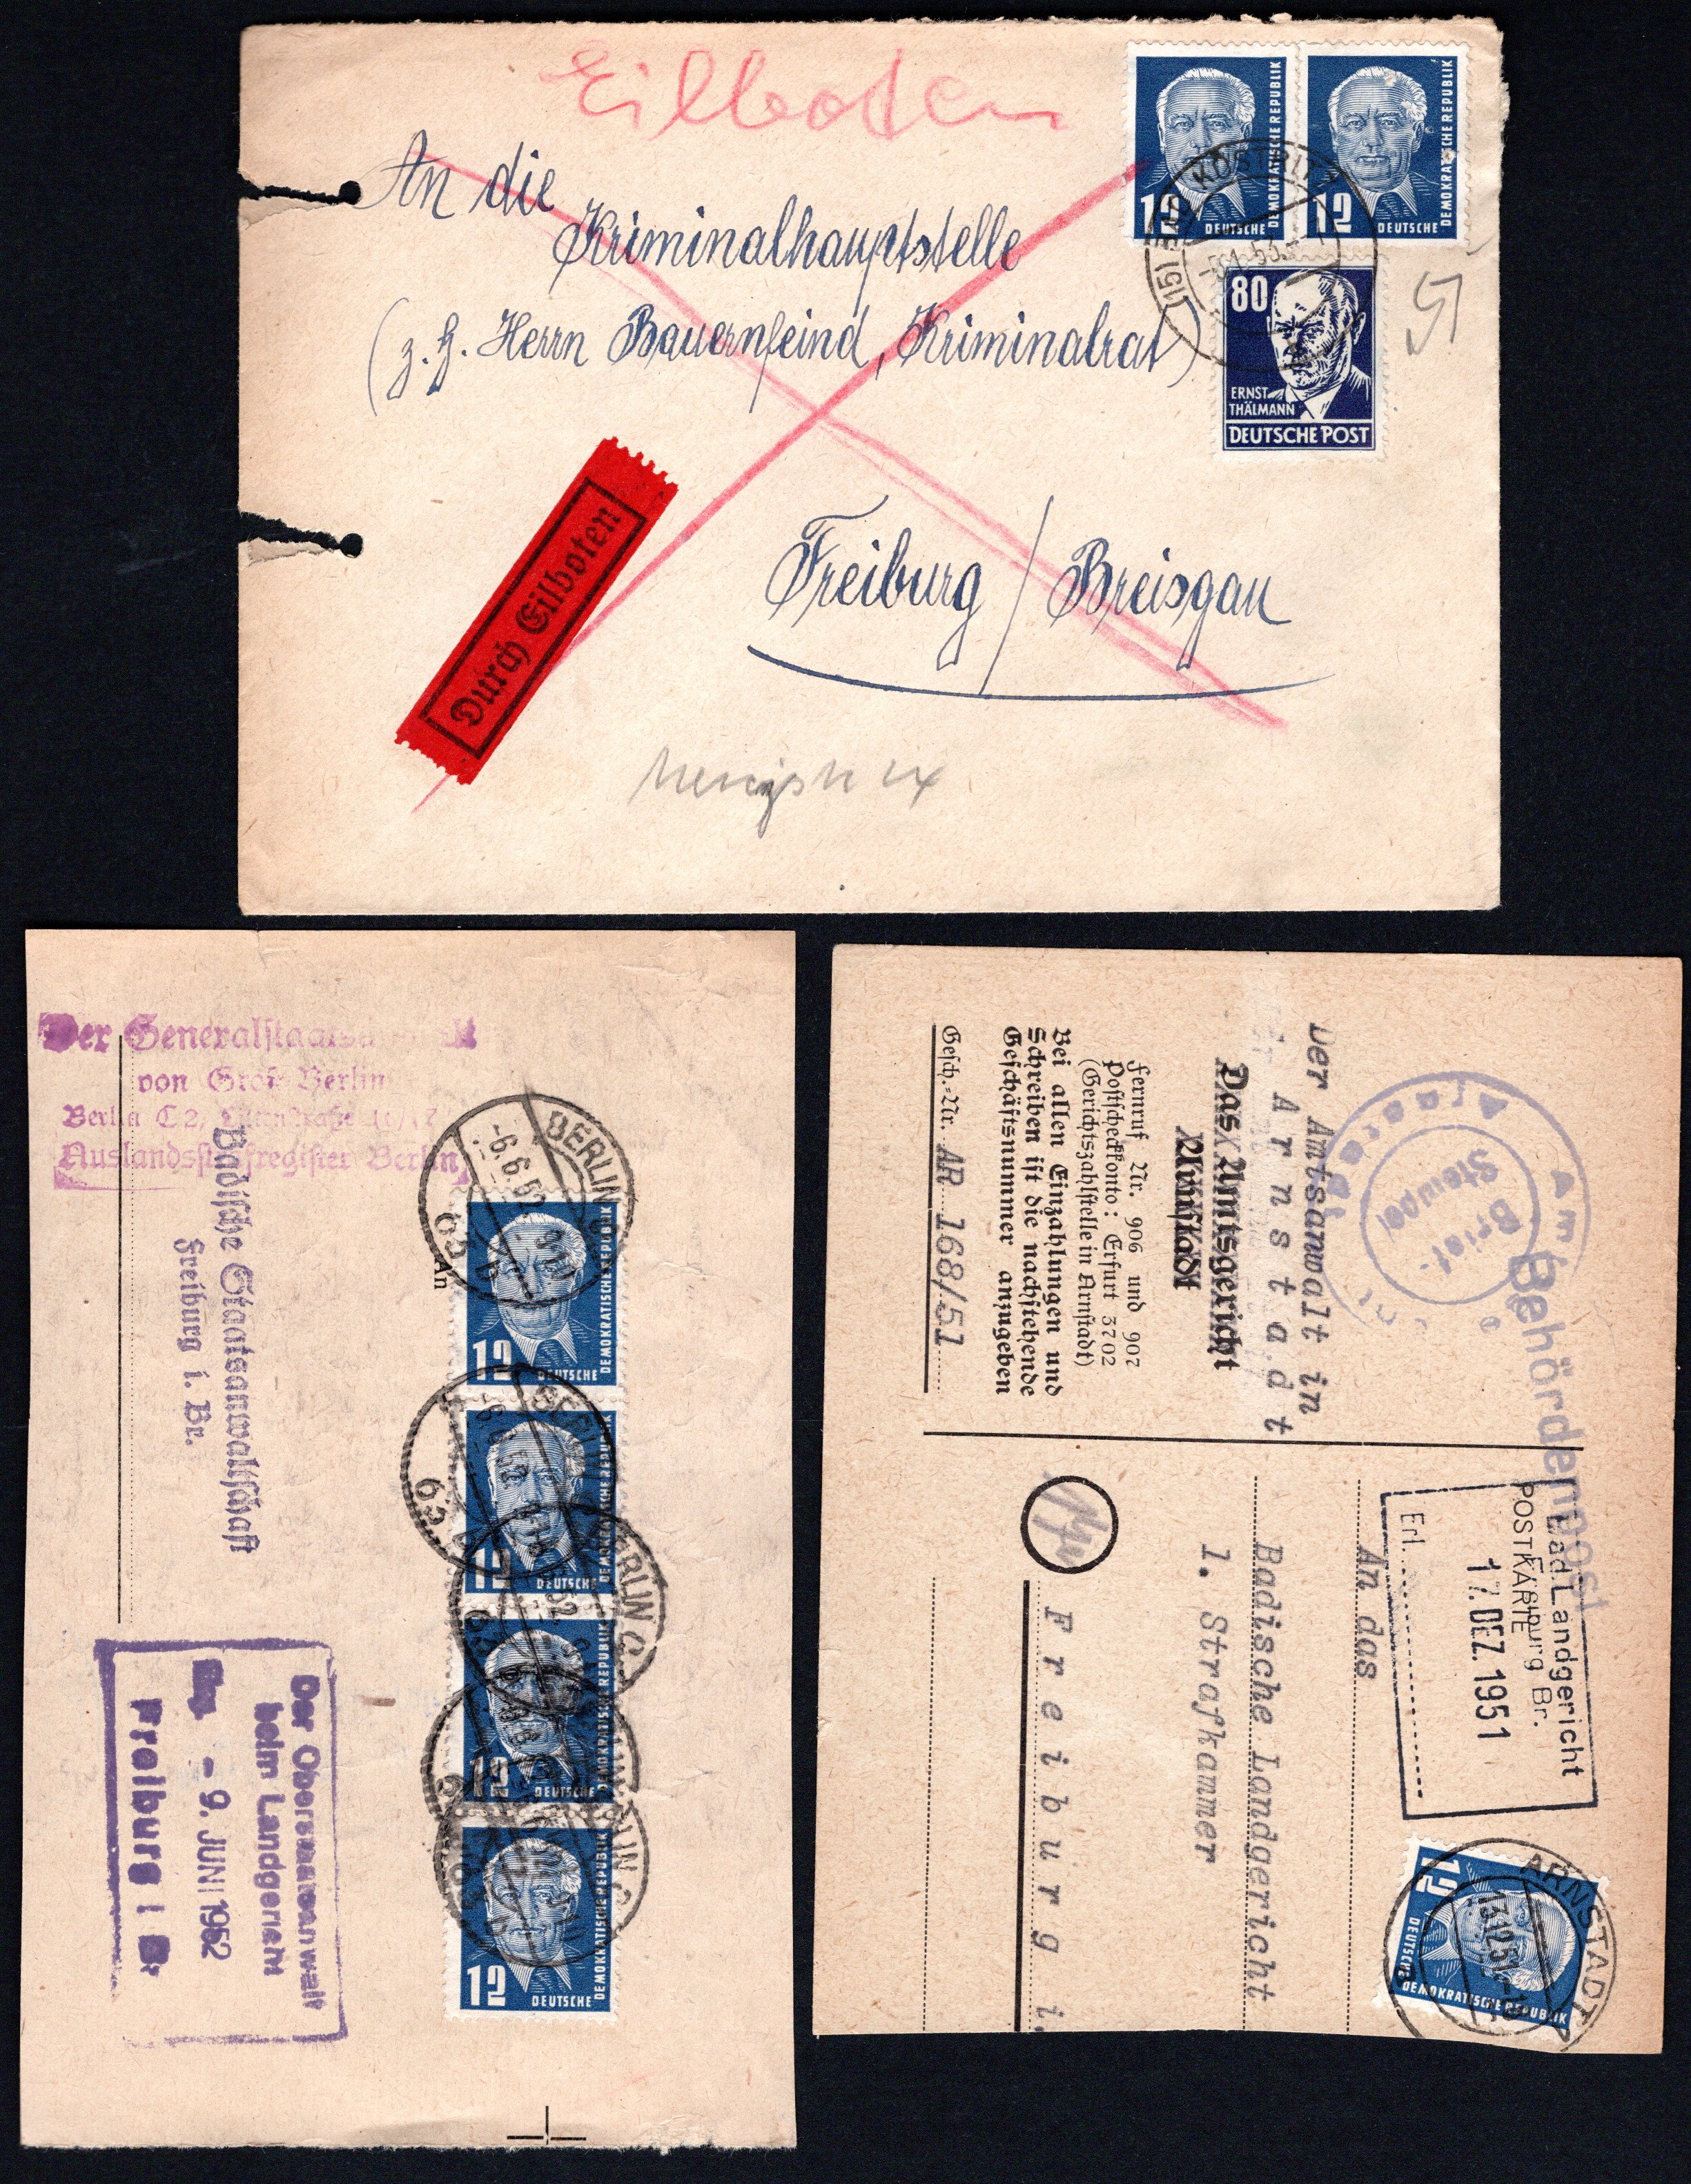 Eilboten
An die
Kriminalhauptstelle
(z. H. Herrn Bauernfeind, Kriminalrat)
Freiburg / Breisgau
Durch Eilboten
12
DEUTSCHE
DEMOKRATISCHE REPUBLIK
12
DEUTSCHE
DEMOKRATISCHE REPUBLIK
80
ERNST
THÄLMANN
DEUTSCHE POST
BAD KÖSTRITZ
Der Generalstaatsanwalt
von Groß-Berlin
Berlin C 2,
Auslandsstrafregister Berlin
Badische Staatsanwaltschaft
Freiburg i. Br.
An
BERLIN C
-6.6.52
12
DEUTSCHE
DEMOKRATISCHE REPUBLIK
BERLIN
12
DEUTSCHE
DEMOKRATISCHE REPUBLIK
BERLIN C
12
DEUTSCHE
DEMOKRATISCHE REPUBLIK
BERLIN C
12
DEUTSCHE
DEMOKRATISCHE REPUBLIK
Der Oberstaatsanwalt
beim Landgericht
Eing. - 9. JUNI 1952
Freiburg i Br
Behördenpost
Brief-
Stempel
Der Amtsanwalt in
Arnstadt
Das Amtsgericht
Arnstadt
Fernruf Nr. 906 und 907
Postscheckkonto: Erfurt 3702
(Gerichtszahlstelle in Arnstadt)
Bei allen Einzahlungen und
Schreiben ist die nachstehende
Geschäftsnummer anzugeben
Gesch.-Nr. AR 168/51
Bad Landgericht
Freiburg Br.
POSTKARTE
17. DEZ. 1951
Erl.
An das
Badische Landgericht
1. Strafkammer
Freiburg i.
ARNSTADT
13.12.51
12
DEUTSCHE
DEMOKRATISCHE REPUBLIK